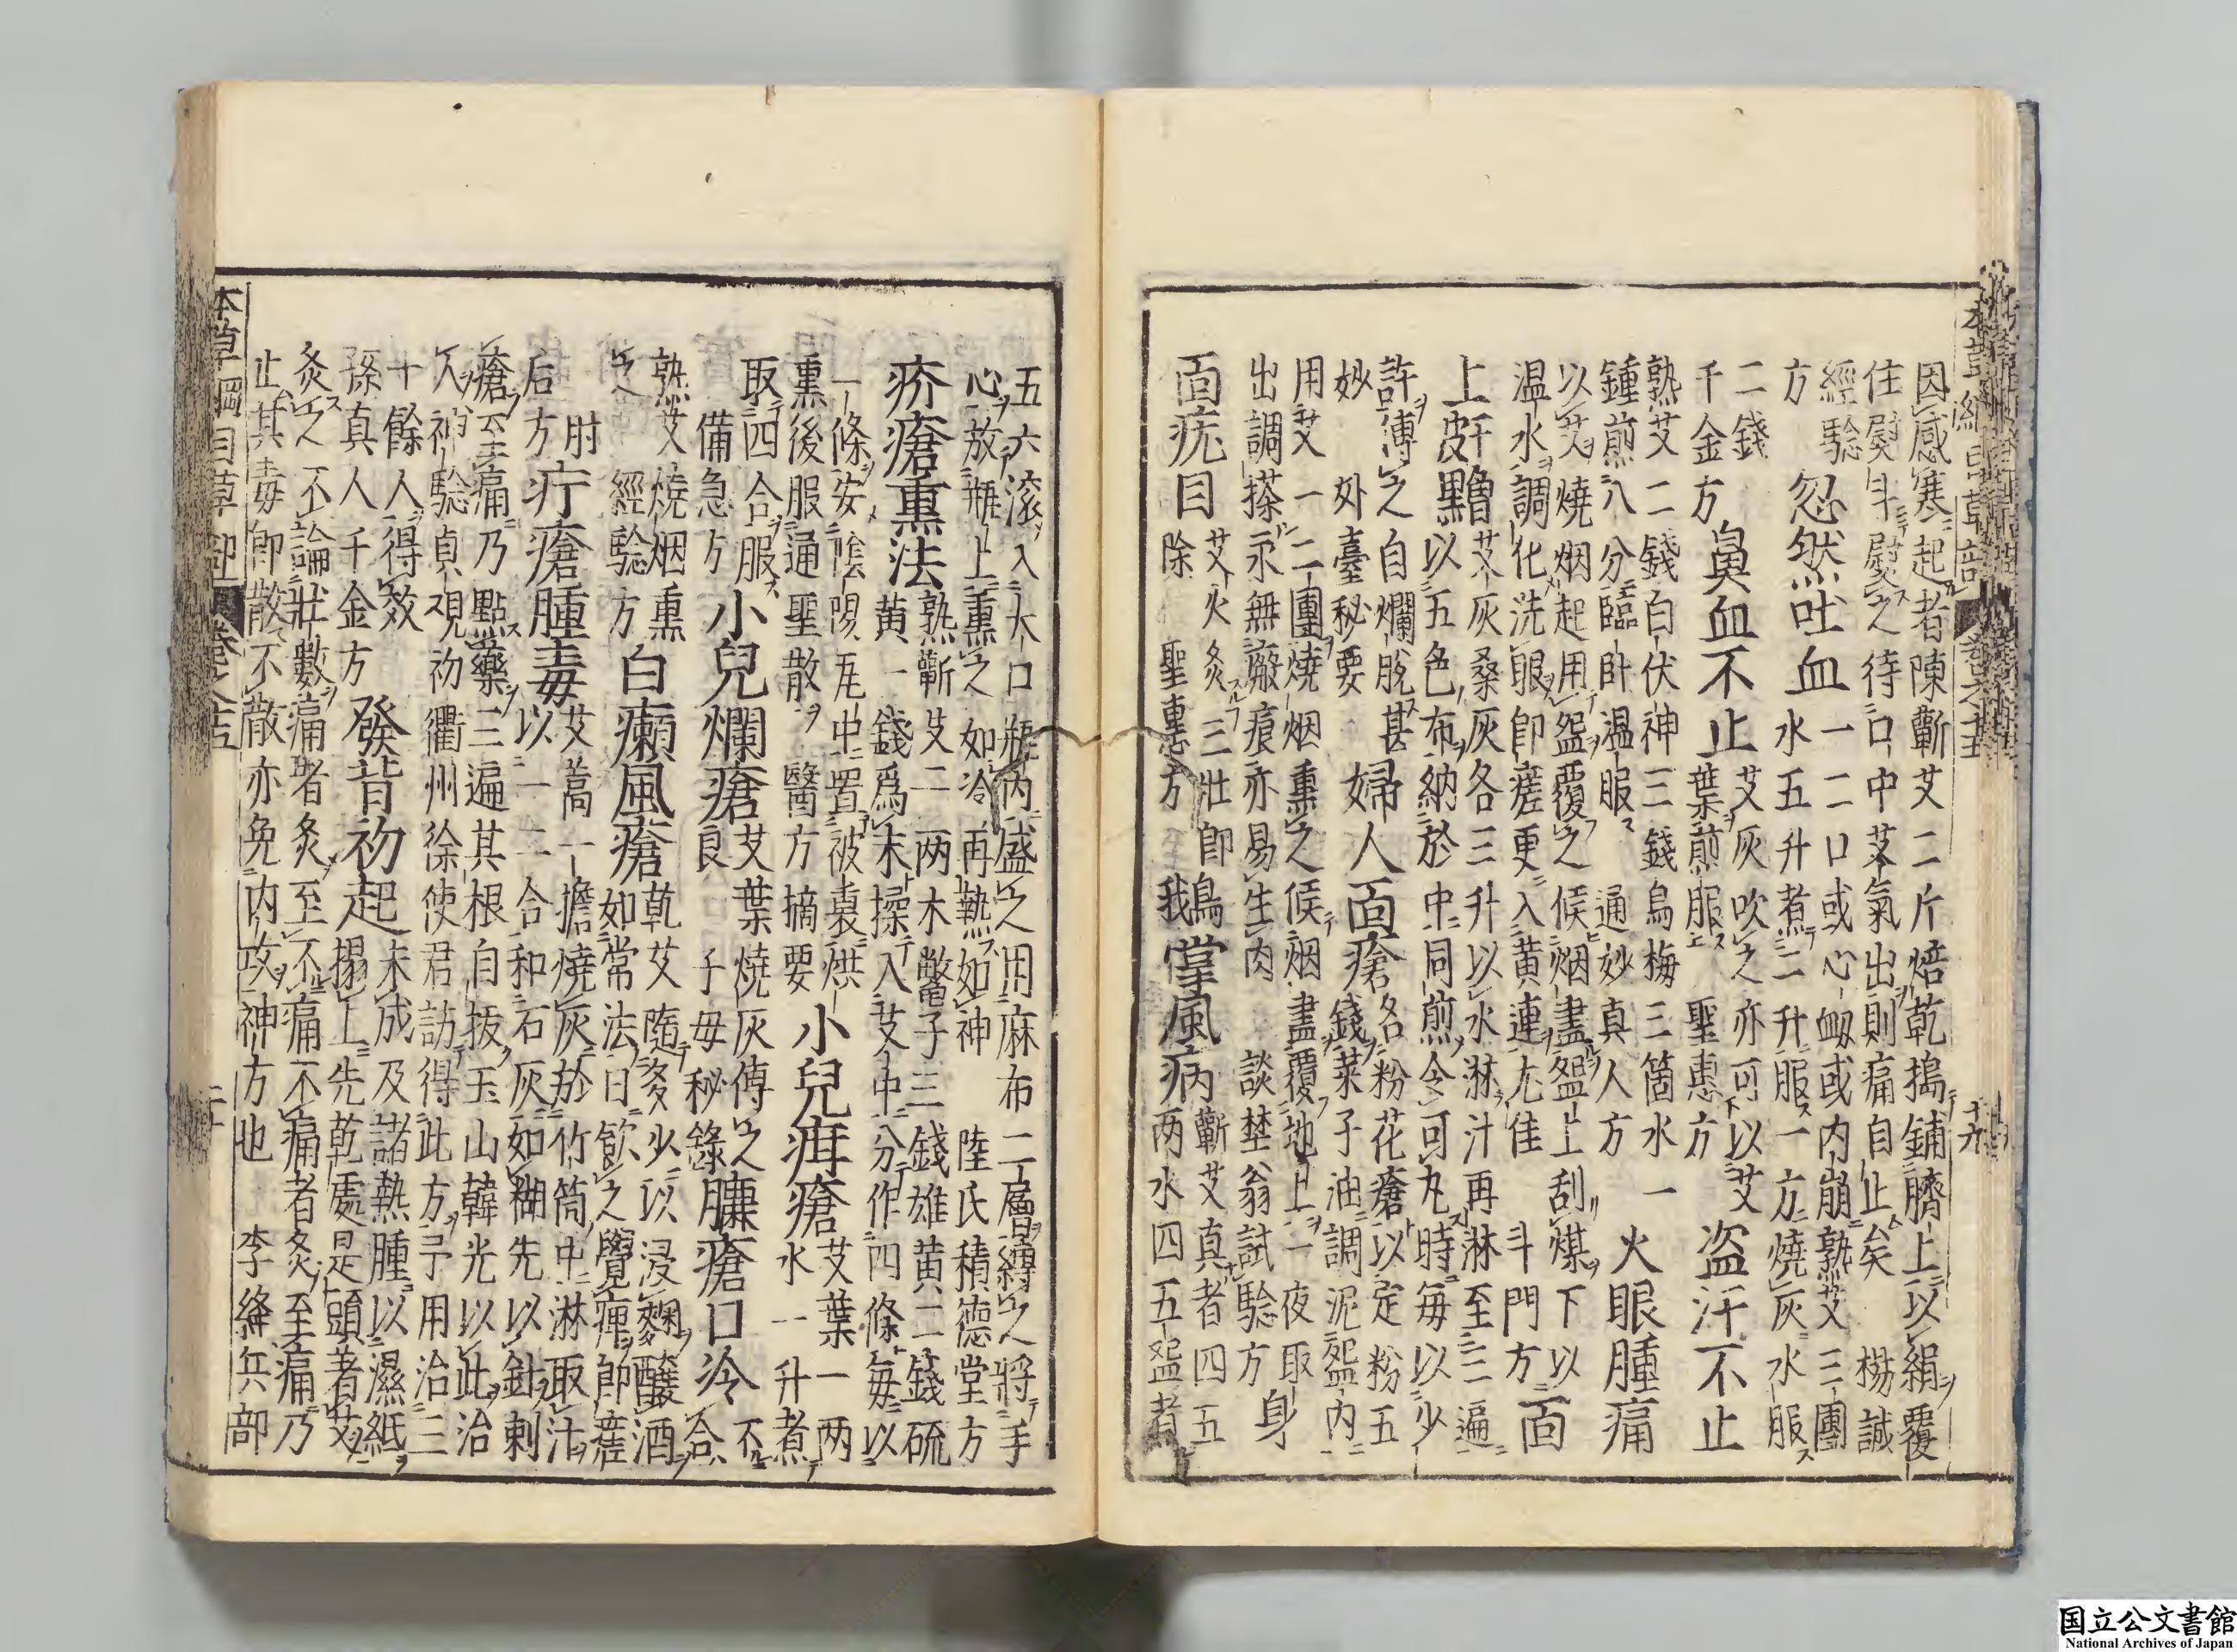 因感寒起者陳蘄艾二斤焙乾搗鋪臍上以絹覆
住熨斗熨之待口中艾氣出則痛自止矣 楊誠
經驗
方 忽然吐血
一二口或心衂或内崩熟艾三團
水五升煮二升服一方燒灰水服
二錢
千金方 鼻血不止
艾灰吹之亦可以艾
葉煎服 聖惠方 盗汗不止
熟艾二錢白伏神三錢烏梅三箇水一
鍾煎八分臨卧温服 通妙真人方 火眼腫痛
以艾燒烟起用盌覆之候烟盡盌上刮煤下以
温水調化洗眼即瘥更入黄連尤佳 斗門方 面
上皯
艾灰桑灰各三升以水淋汁再淋至三遍
以五色布納於中同煎令可丸時每以少
許傅之自爛脱甚
妙 外臺秘要 婦人面瘡
名粉花瘡以定粉五
錢菜子油調泥盌内
用艾一二團燒烟熏之候烟盡覆地上一夜取
出調搽永無瘢痕亦易生肉 談埜翁試驗方 身
面疣目
艾火灸三壯即
除 聖惠方 鵝掌風病
蘄艾真者四五
两水四五盌煮
五六滚入大口瓶内盛之用麻布二層縛之將手
心放瓶上熏之如冷再熱如神 陸氏積徳堂方
疥瘡熏法
熟蘄艾二两木鱉子三錢雄黄二錢硫
黄一錢爲末揉入艾中分作四條每以
一條安陰陽瓦中置被裏烘
熏後服通聖散 醫方摘要 小兒疳瘡
艾葉一两
水一升煮
取四合服
備急方 小兒爛瘡
艾葉燒灰傅之
良 子母秘錄 臁瘡口冷
不
合
熟艾燒烟熏
之 經驗方 白癩風瘡
乾艾隨多少以浸麴釀酒
如常法日飲之覺痺即瘥
肘
后方 疔瘡腫毒
艾蒿一擔燒灰於竹筒中淋取汁
以一二合和石灰如糊先以針刺
瘡至痛乃點藥三遍其根自拔玉山韓光以此治
人神驗貞覌初衢州徐使君訪得此方予用治三
十餘人得效
孫真人千金方 發背初起
未成及諸熱腫以濕紙
搨上先乾處是頭著艾
灸之不論壯數痛者灸至不痛不痛者灸至痛乃
止其毒即散不散亦免内攻神方也 李絳兵部
国立公文書館
National Archives of Japan